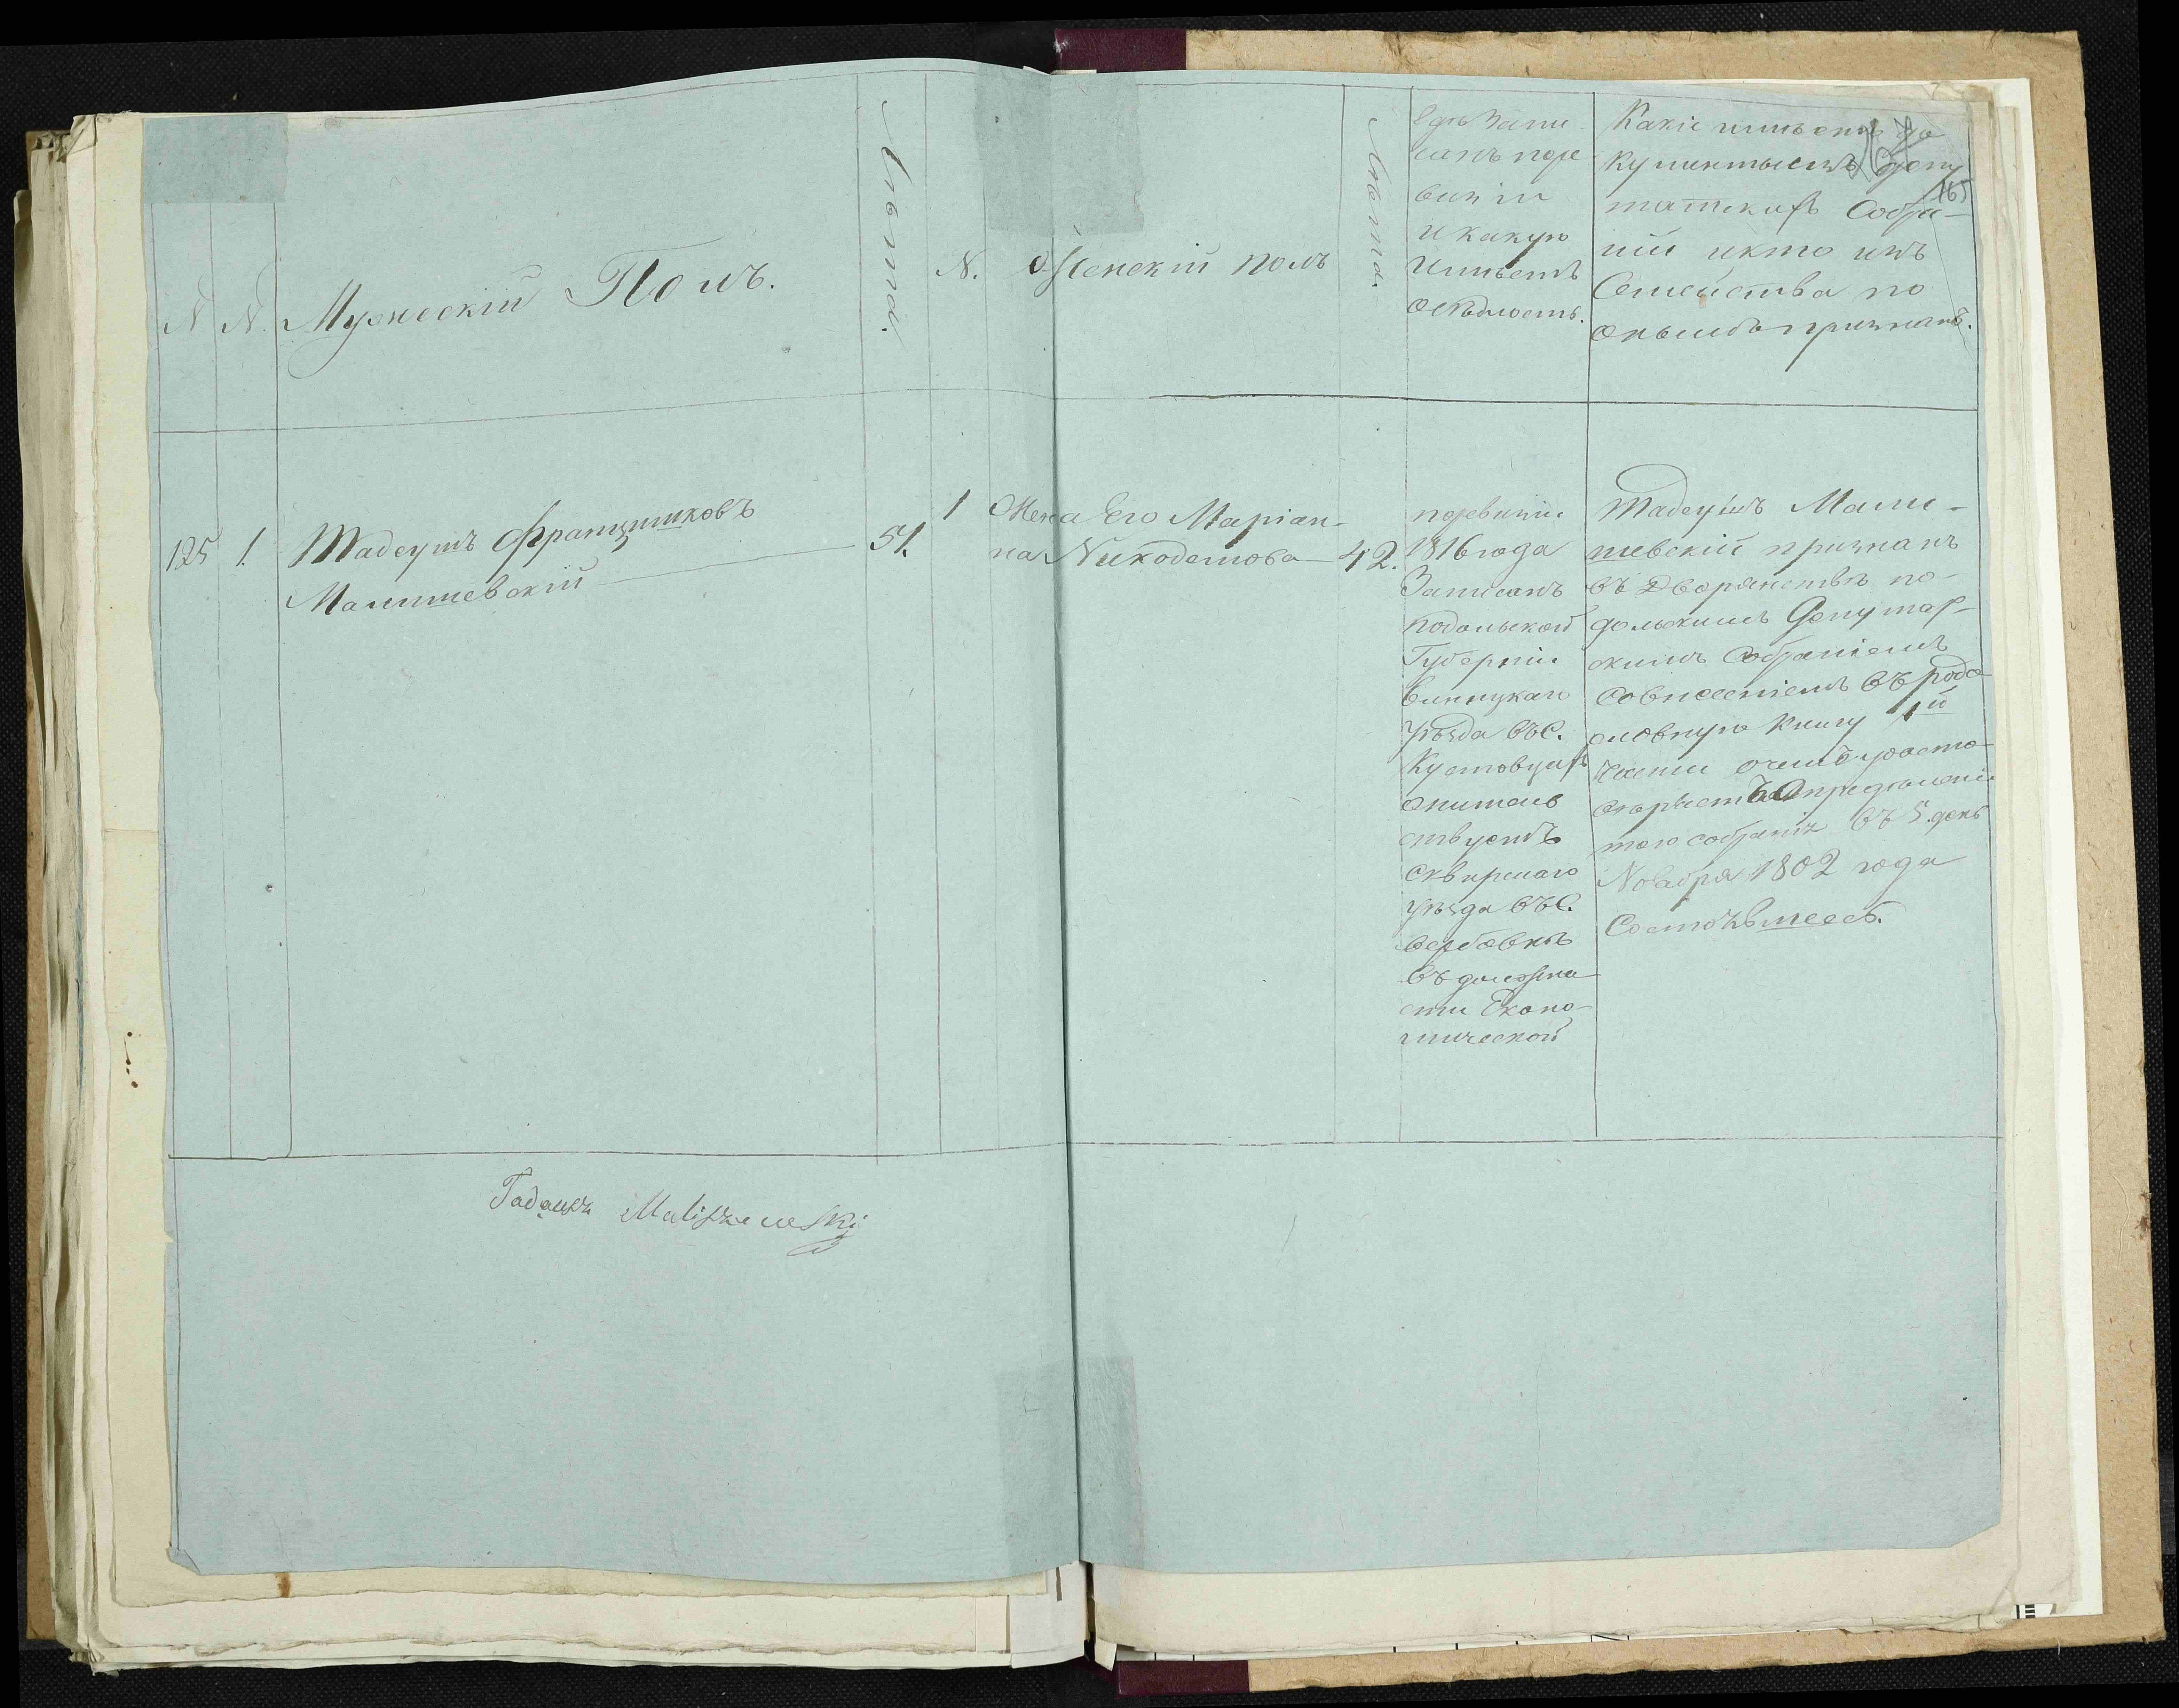 N
N.
Мужескій Полъ.
Лѣта.
N.
Женскій полъ
Лѣта.
Гдѣ Запи-
санъ поре
визіи
и какую
Имѣетъ
Осѣдлость.
Какіе имѣетъ до
кументы
татскихъ Собра-
ній и кто изъ
Семейства по
онымъ признанъ.
67
165
125
1.
Тадеушъ Францишковъ
Малишевскій
51.
1
Жена Его Маріан-
на Никодемова
42.
поревизіи
1816 года
Записанъ
подольской
Губерніи
винницкаго
уѣзда въ С.
Кустовцахъ
жительс
твуетъ
сквирскаго
уѣзда въ С.
вербовкѣ
въ должно
сти Еконо-
мической
Тадеушъ Мали-
шевскій признанъ
въ Дворянствѣ по-
дольскимъ Депутат-
скимъ Собраніемъ
совнесеніемъ въ родо
словную Книгу 1й
части о чемъ удосто-
Опредѣленіе
того собранія въ 5. день
Ноября 1802 года
Состоявшеесь.
Tadeusz Maliszewski